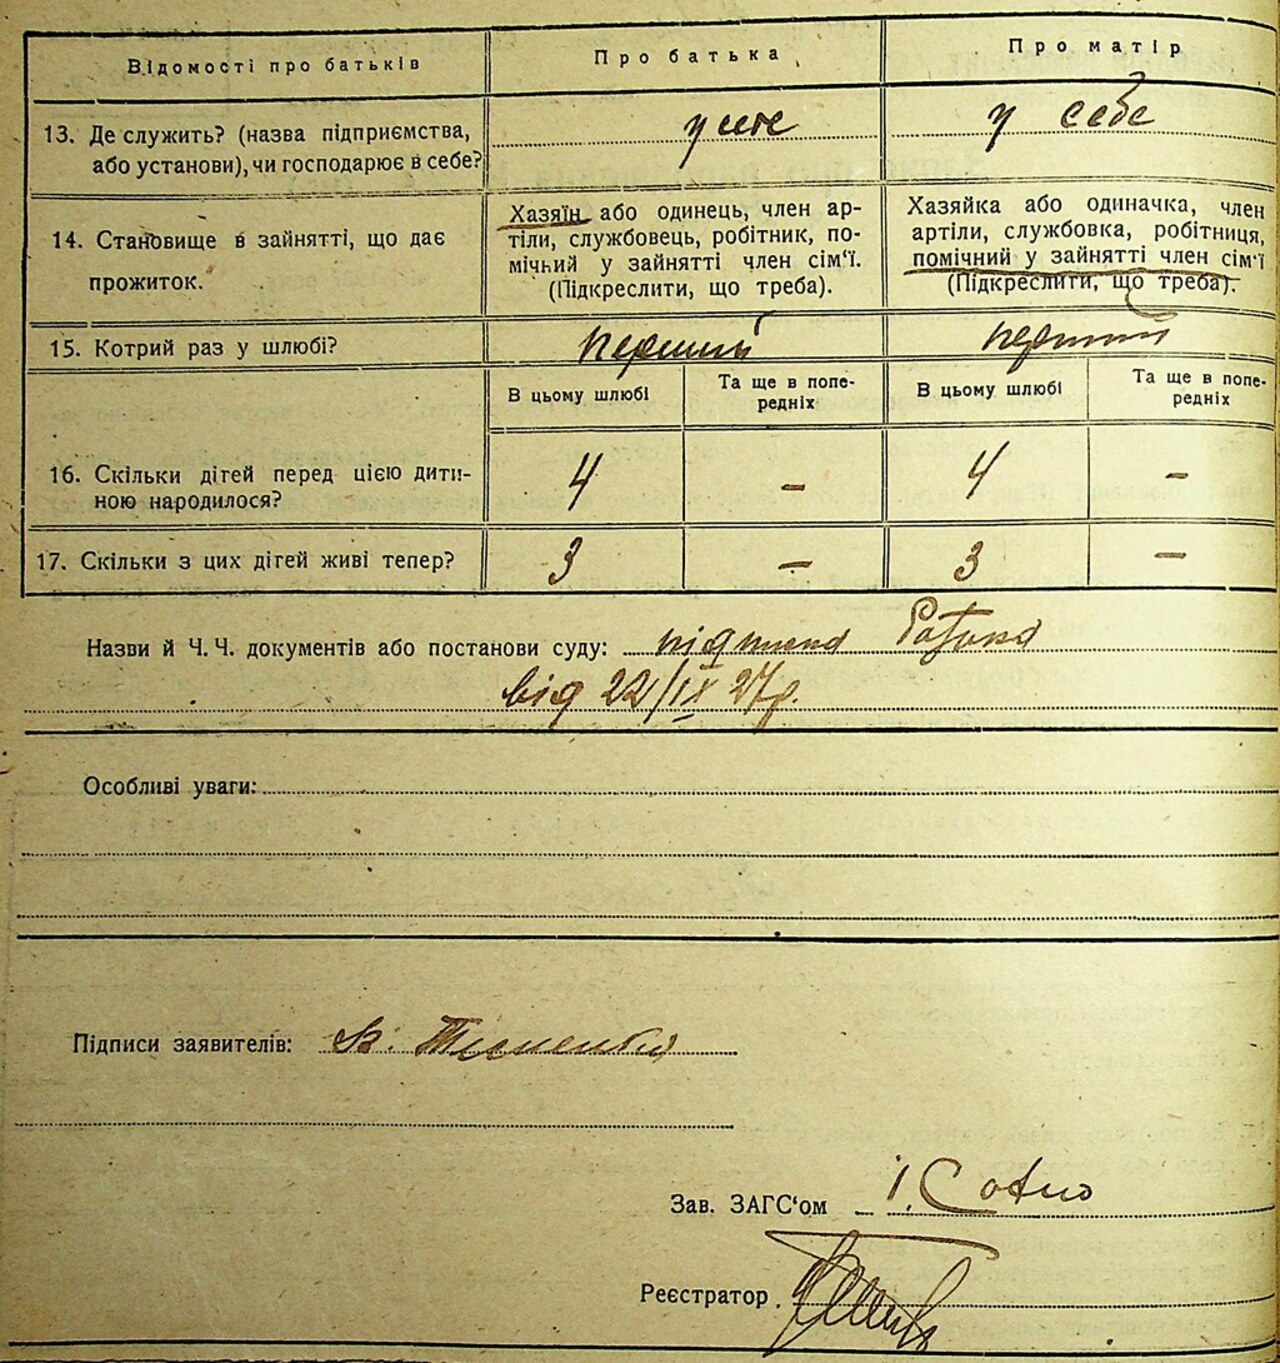 Відомості про батьків
Про батька
Про матір
13. Де служить? (назва підприємства,
або установи), чи господарює в себе?
у себе
у себе
14. Становище в зайнятті, що дає
прожиток.
Хазяїн або одинець, член ар-
тіли, службовець, робітник, по-
мічний у зайнятті член сім'ї.
(Підкреслити, що треба).
Хазяйка або одиначка, член
артіли, службовка, робітниця,
помічний у зайнятті член сім'ї
(Підкреслити, що треба).
15. Котрий раз у шлюбі?
перший
перший
В цьому шлюбі
Та ще в попе-
редніх
В цьому шлюбі
Та ще в попе-
редніх
16. Скільки дітей перед цією дити-
ною народилося?
4
–
4
–
17. Скільки з цих дітей живі тепер?
3
–
3
–
Назви й Ч. Ч. документів або постанови суду:
від 22/IX 27р.
Особливі уваги:
Підписи заявителів:
Зав. ЗАГС'ом
Реєстратор